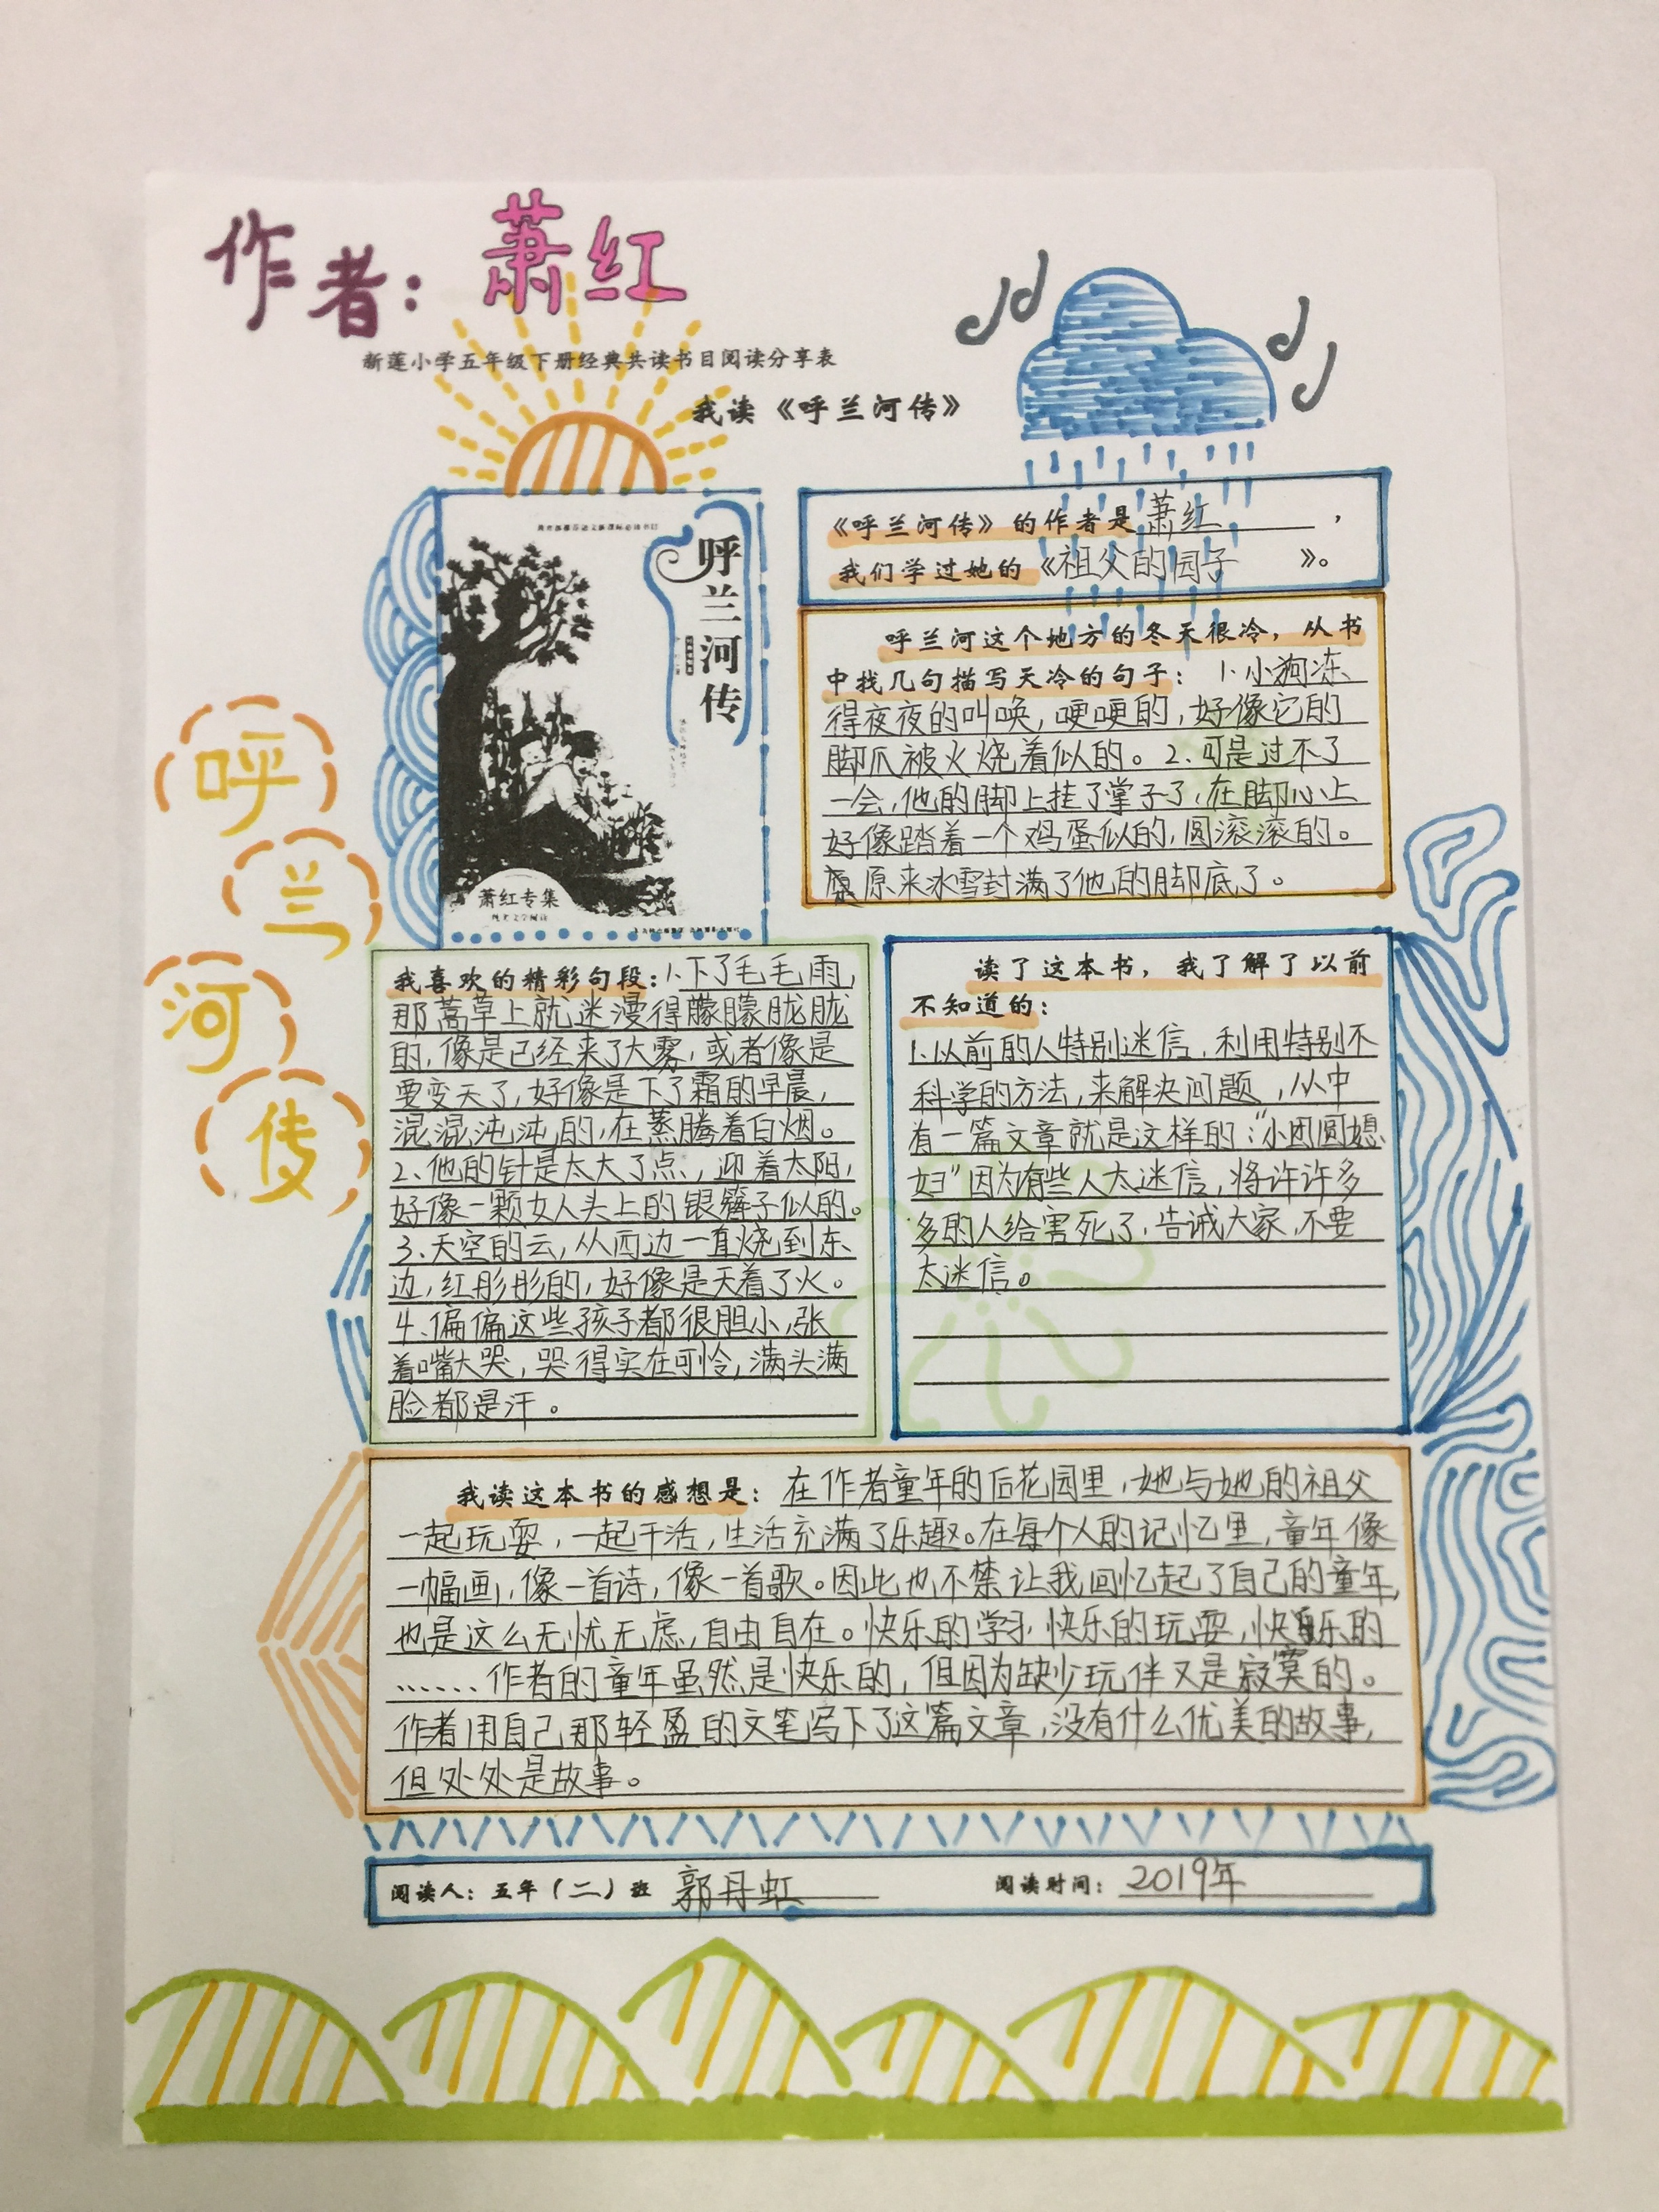 作者：萧红
新莲小学五年级下册经典共读书目阅读分享表
我读《呼兰河传》
呼兰河传
萧红专集
呼
兰
河
传
《呼兰河传》的作者是萧红，
我们学过她的《祖父的园子》。
呼兰河这个地方的冬天很冷，从书
中找几句描写天冷的句子：1.小狗冻
得夜夜的叫唤，哽哽的，好像它的
脚爪被火烧着似的。2.可是过不了
一会，他的脚上挂了掌子了，在脚心上
好像踏着一个鸡蛋似的，圆滚滚的。
原来冰雪封满了他的脚底了。
我喜欢的精彩句段：1.下了毛毛雨，
那蒿草上就迷漫得朦朦胧胧
的，像是已经来了大雾，或者像是
要变天了，好像是下了霜的早晨，
混混沌沌的，在蒸腾着白烟。
2.他的针是太大了点，迎着太阳，
好像一颗女人头上的银簪子似的。
3.天空的云，从西边一直烧到东
边，红彤彤的，好像是天着了火。
4.偏偏这些孩子都很胆小，张
着嘴大哭，哭得实在可怜，满头满
脸都是汗。
读了这本书，我了解了以前
不知道的：
1.以前的人特别迷信，利用特别不
科学的方法，来解决问题，从中
有一篇文章就是这样的：“小团圆媳
妇”因为有些人太迷信，将许许多
多的人给害死了，告诫大家，不要
太迷信。
我读这本书的感想是：在作者童年的后花园里，她与她的祖父
一起玩耍，一起干活，生活充满了乐趣。在每个人的记忆里，童年像
一幅画，像一首诗，像一首歌。因此也不禁让我回忆起了自己的童年，
也是这么无忧无虑，自由自在。快乐的学习，快乐的玩耍，快乐的
……作者的童年虽然是快乐的，但因为缺少玩伴又是寂寞的。
作者用自己那轻盈的文笔写下了这篇文章，没有什么优美的故事，
但处处是故事。
阅读人：五年（二）班 郭丹虹 阅读时间：2019年